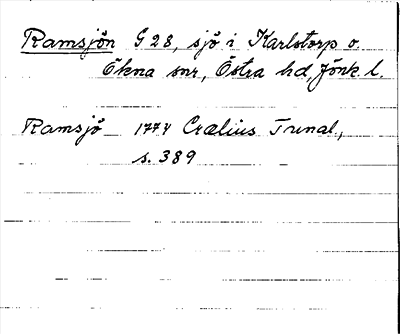 Ramsjön G 28, sjö i Karlstorp o.
Ökna snr, Östra hd, Jönk. l.
Ramsjö 1774 Crælius Tunal,
s. 389